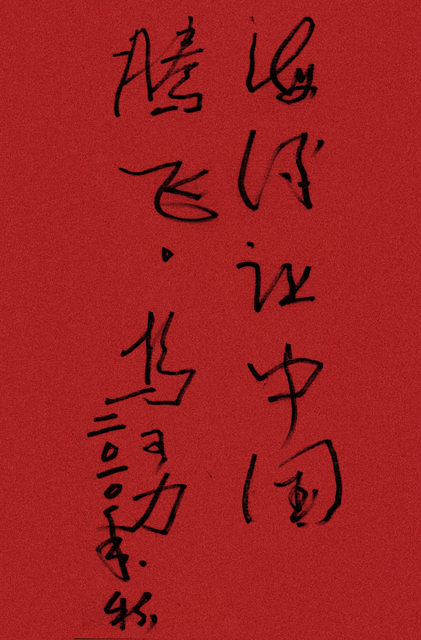 海得让中国
腾飞.
二〇一〇年.秋